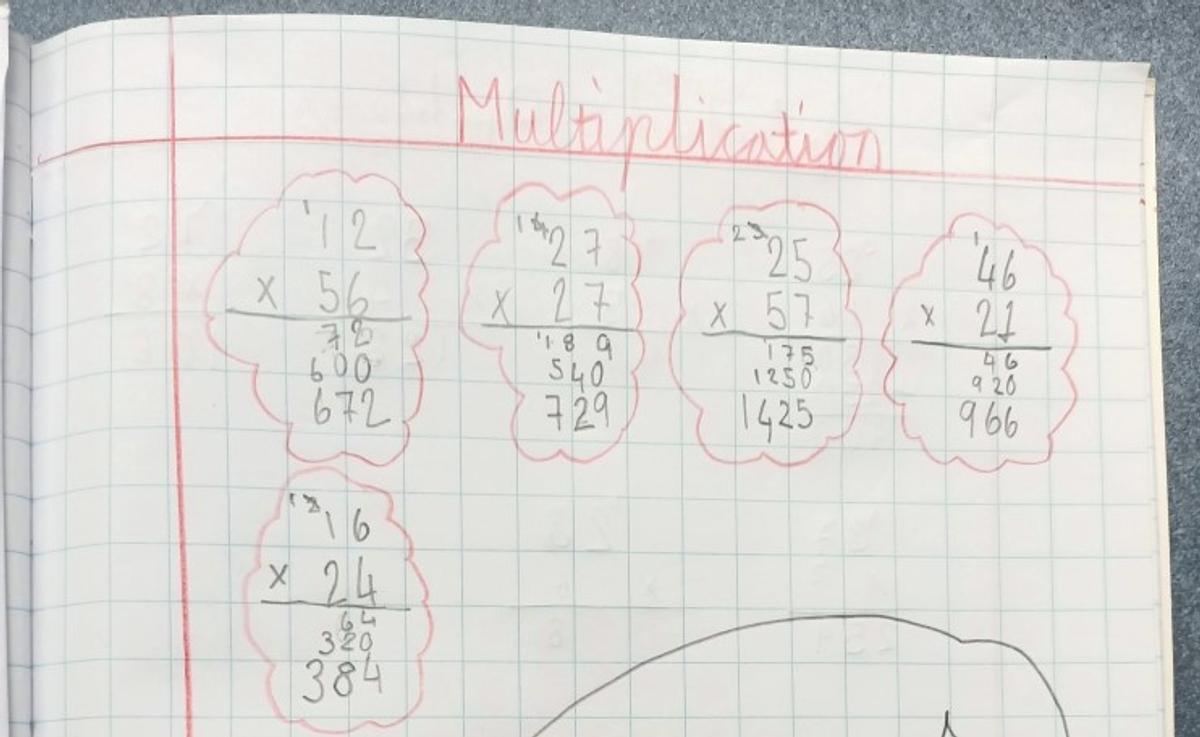 Multiplication
1
12
x 56
72
600
672
1 4
27
x 27
1
189
540
729
2 3
25
x 57
175
1250
1425
1
46
x 21
46
920
966
1 2
16
x 24
64
320
384